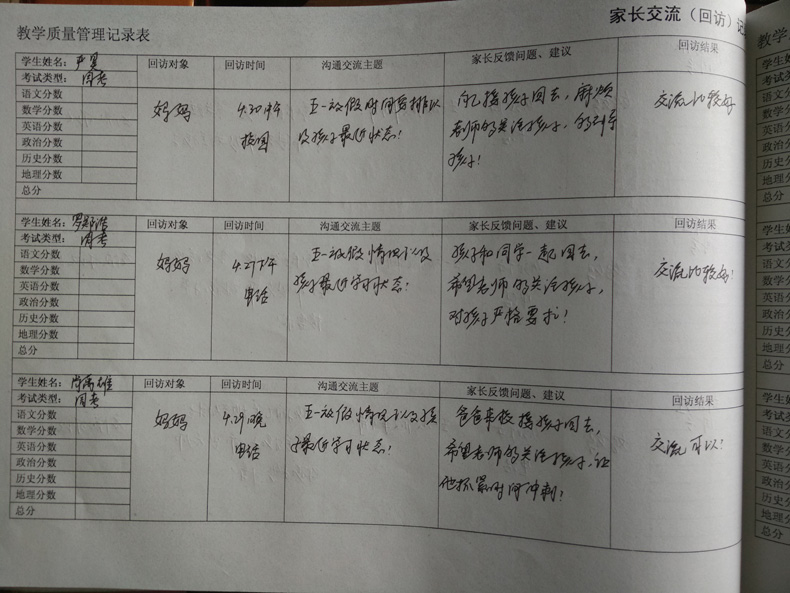 教学质量管理记录表
家长交流（回访）记
学生姓名：
考试类型：周考
语文分数
数学分数
英语分数
政治分数
历史分数
地理分数
总分
回访对象
妈妈
回访时间
校园
沟通交流主题
五一放假时间安排以
及孩子最近状态！
家长反馈问题、建议
接孩子回去，麻烦
老师多关注孩子，多引导
孩子！
回访结果
交流比较好
学生姓名：
考试类型：周考
语文分数
数学分数
英语分数
政治分数
历史分数
地理分数
总分
回访对象
妈妈
回访时间
4.27下午
电话
沟通交流主题
五一放假情况以及
孩子最近学习状态！
家长反馈问题、建议
孩子和同学一起回去，
希望老师多关注孩子，
对孩子严格要求！
回访结果
交流比较好！
学生姓名：
考试类型：周考
语文分数
数学分数
英语分数
政治分数
历史分数
地理分数
总分
回访对象
妈妈
回访时间
4.29晚
电话
沟通交流主题
五一放假情况以及孩
子最近学习状态！
家长反馈问题、建议
爸爸来校接孩子回去，
希望老师多关注孩子，让
他抓紧时间冲刺！
回访结果
交流可以！
教学
学生姓
考试类
语文分
数学分
英语分
政治分
历史分
地理分
总分